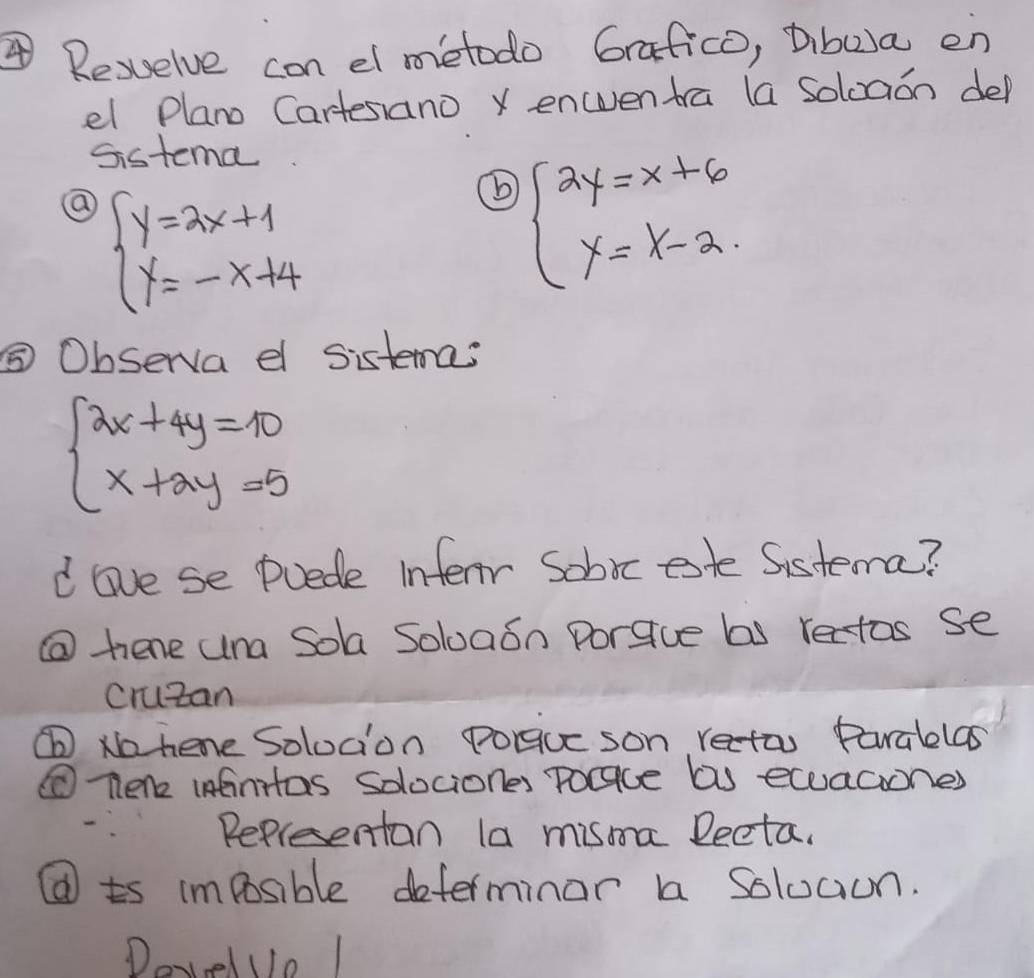 ④ Resuelve con el método Grafico, Dibuja en
el Plano Cartesiano y encuentra la Solución del
Sistema.
ⓐ { y = 2x + 1
y = -x + 4
ⓑ { 2y = x + 6
y = x - 2.
⑤ Observa el Sistema:
{ 2x + 4y = 10
x + 2y = 5
¿Que se puede inferir Sobre este Sistema?
ⓐ tiene una Sola Solución Porque las rectas se
cruzan
ⓑ No tiene Solución Porque son rectas Paralelas
ⓒ Tiene infinitas Soluciones Porque las ecuaciones
Representan la misma Recta.
ⓓ Es imposible determinar la Solución.
Resuelve!